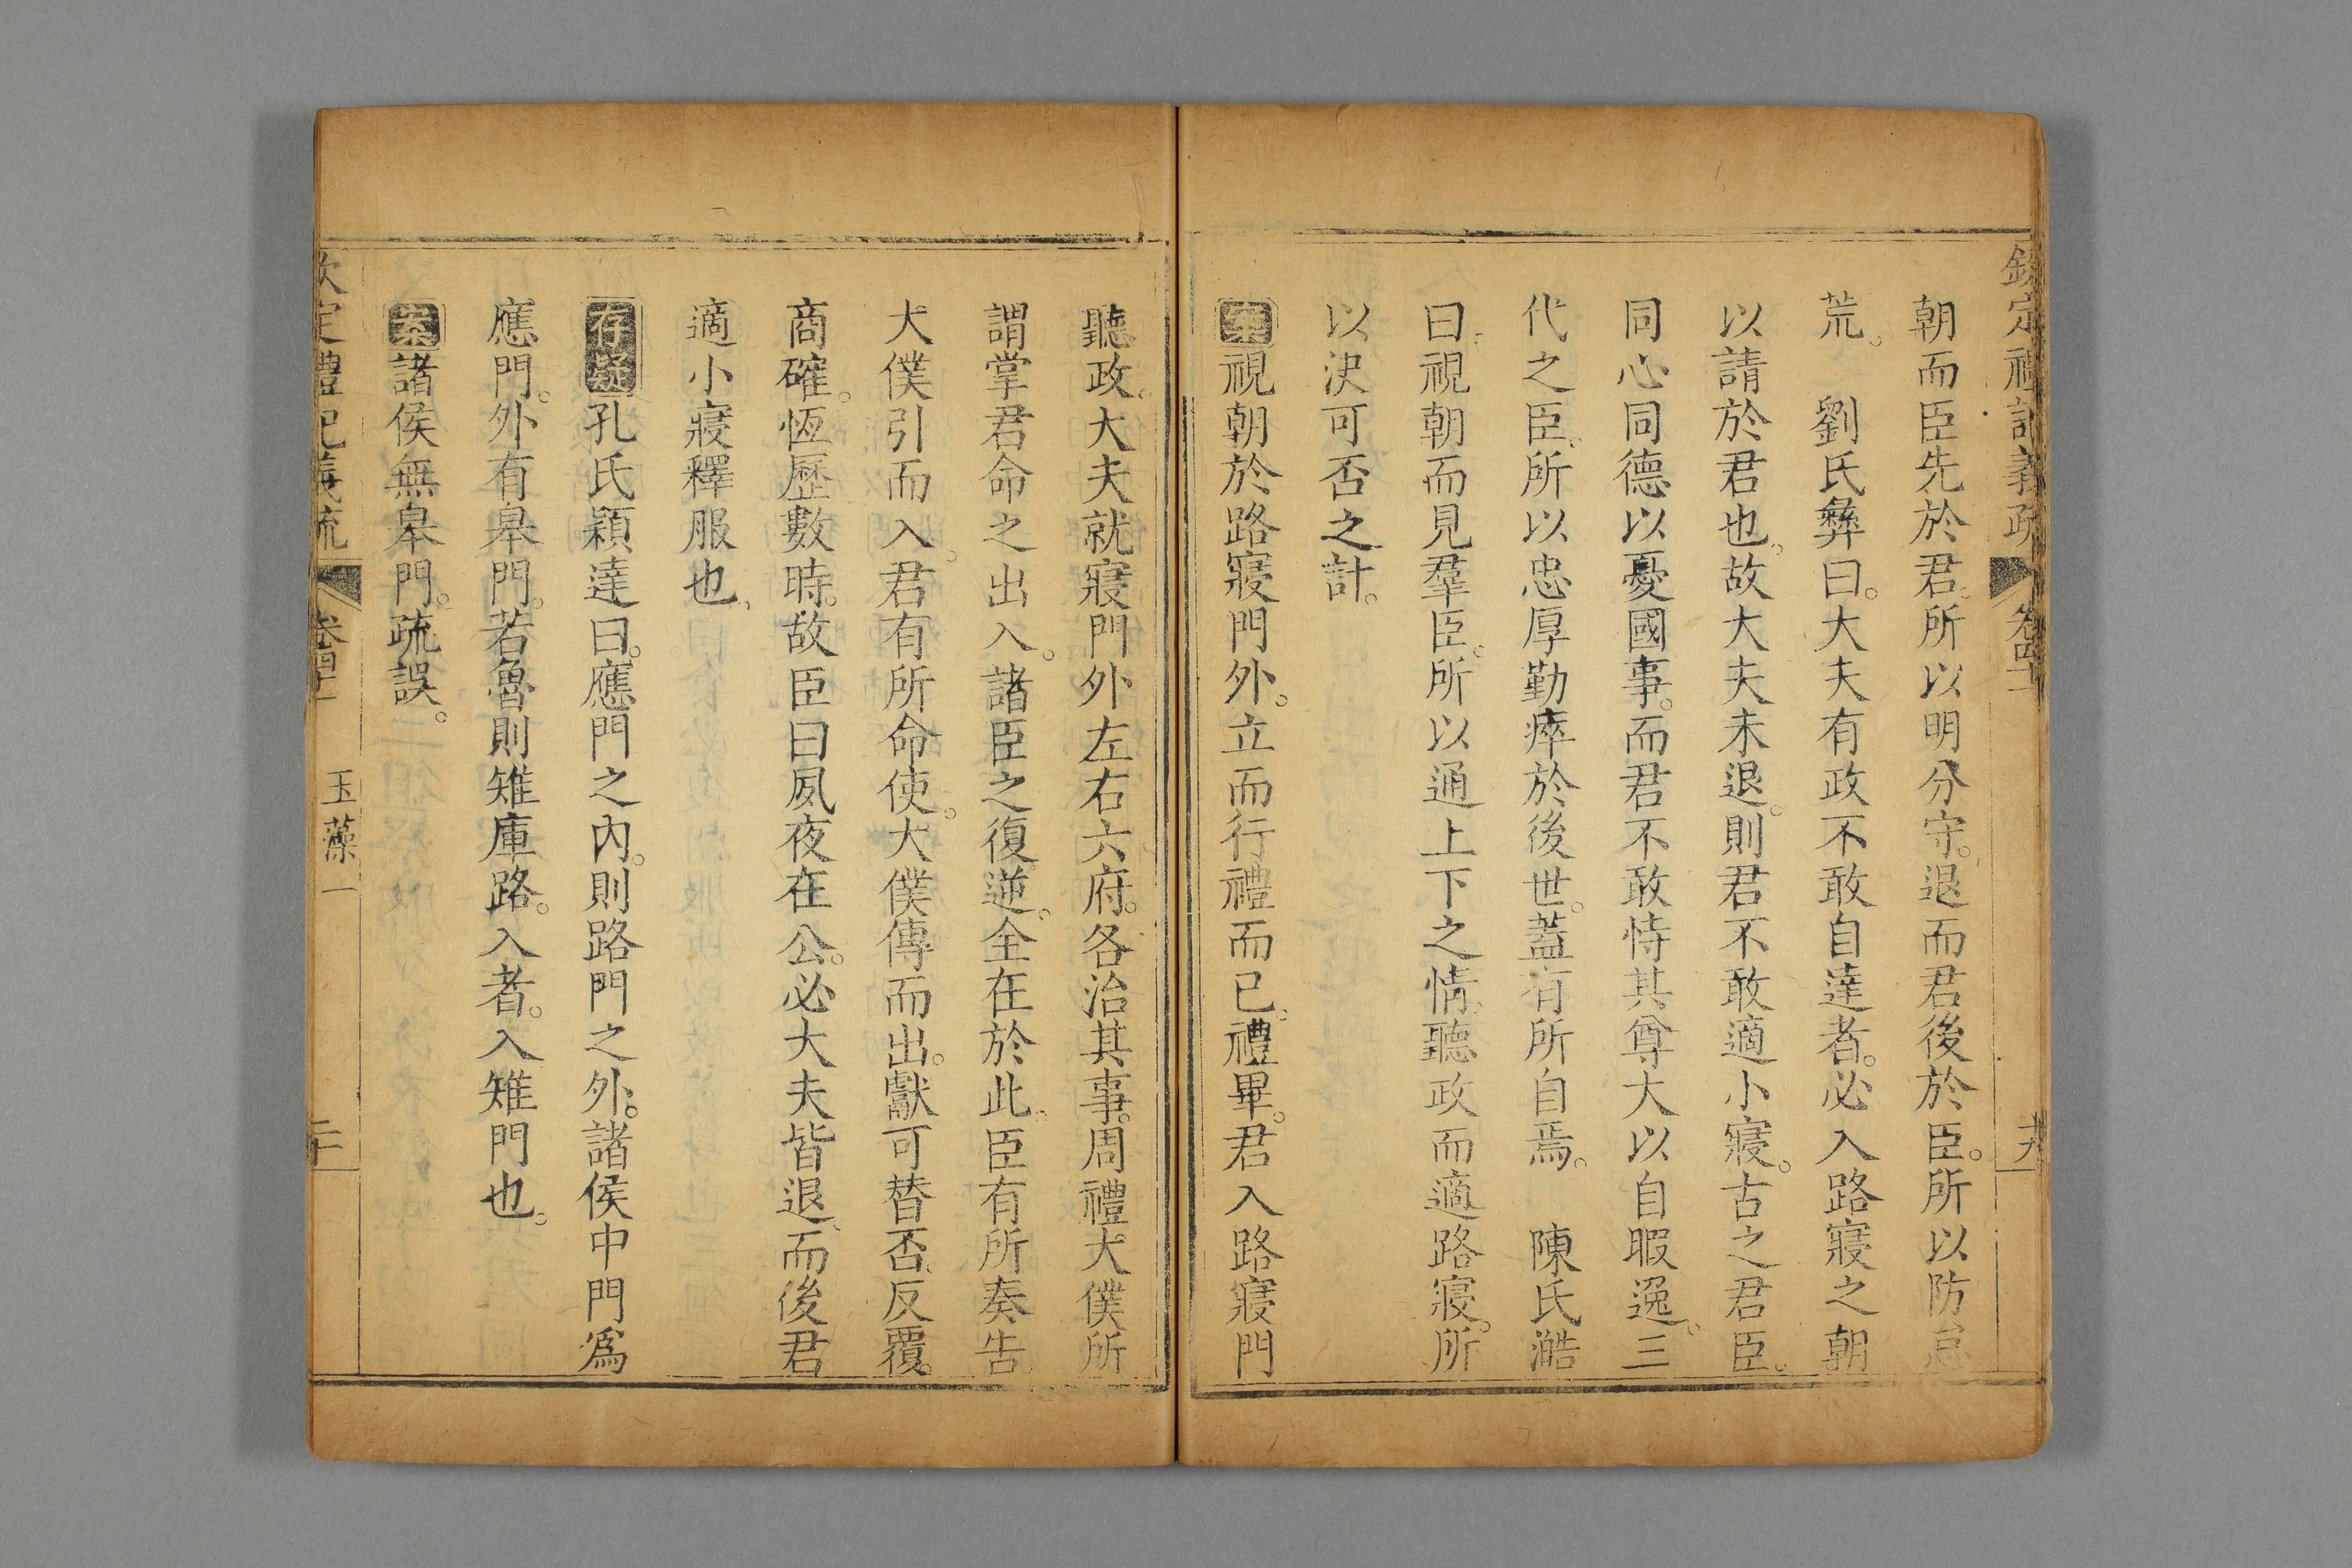 欽定禮記義疏 卷四十一 十九
朝而臣先於君。所以明分守。退而君後於臣。所以防怠
荒。 劉氏彝曰。大夫有政不敢自達者。必入路寢之朝
以請於君也。故大夫未退。則君不敢適小寢。古之君臣。
同心同德以憂國事。而君不敢恃其尊大以自暇逸。三
代之臣。所以忠厚勤瘁於後世。蓋有所自焉。 陳氏澔
曰。視朝而見羣臣。所以通上下之情。聽政而適路寢。所
以決可否之計。
案視朝於路寢門外。立而行禮而已。禮畢。君入路寢門
聽政。大夫就寢門外左右六府。各治其事。周禮大僕所
謂掌君命之出入。諸臣之復逆。全在於此。臣有所奏告。
大僕引而入。君有所命使。大僕傳而出。獻可替否。反覆。
商確。恆歷數時。故臣曰夙夜在公。必大夫皆退。而後君
適小寢釋服也。
存疑孔氏穎達曰。應門之內。則路門之外。諸侯中門爲
應門。外有皋門。若魯則雉庫路。入者。入雉門也。
案諸侯無皋門。疏誤。
欽定禮記義疏 卷四十一 玉藻一 二十